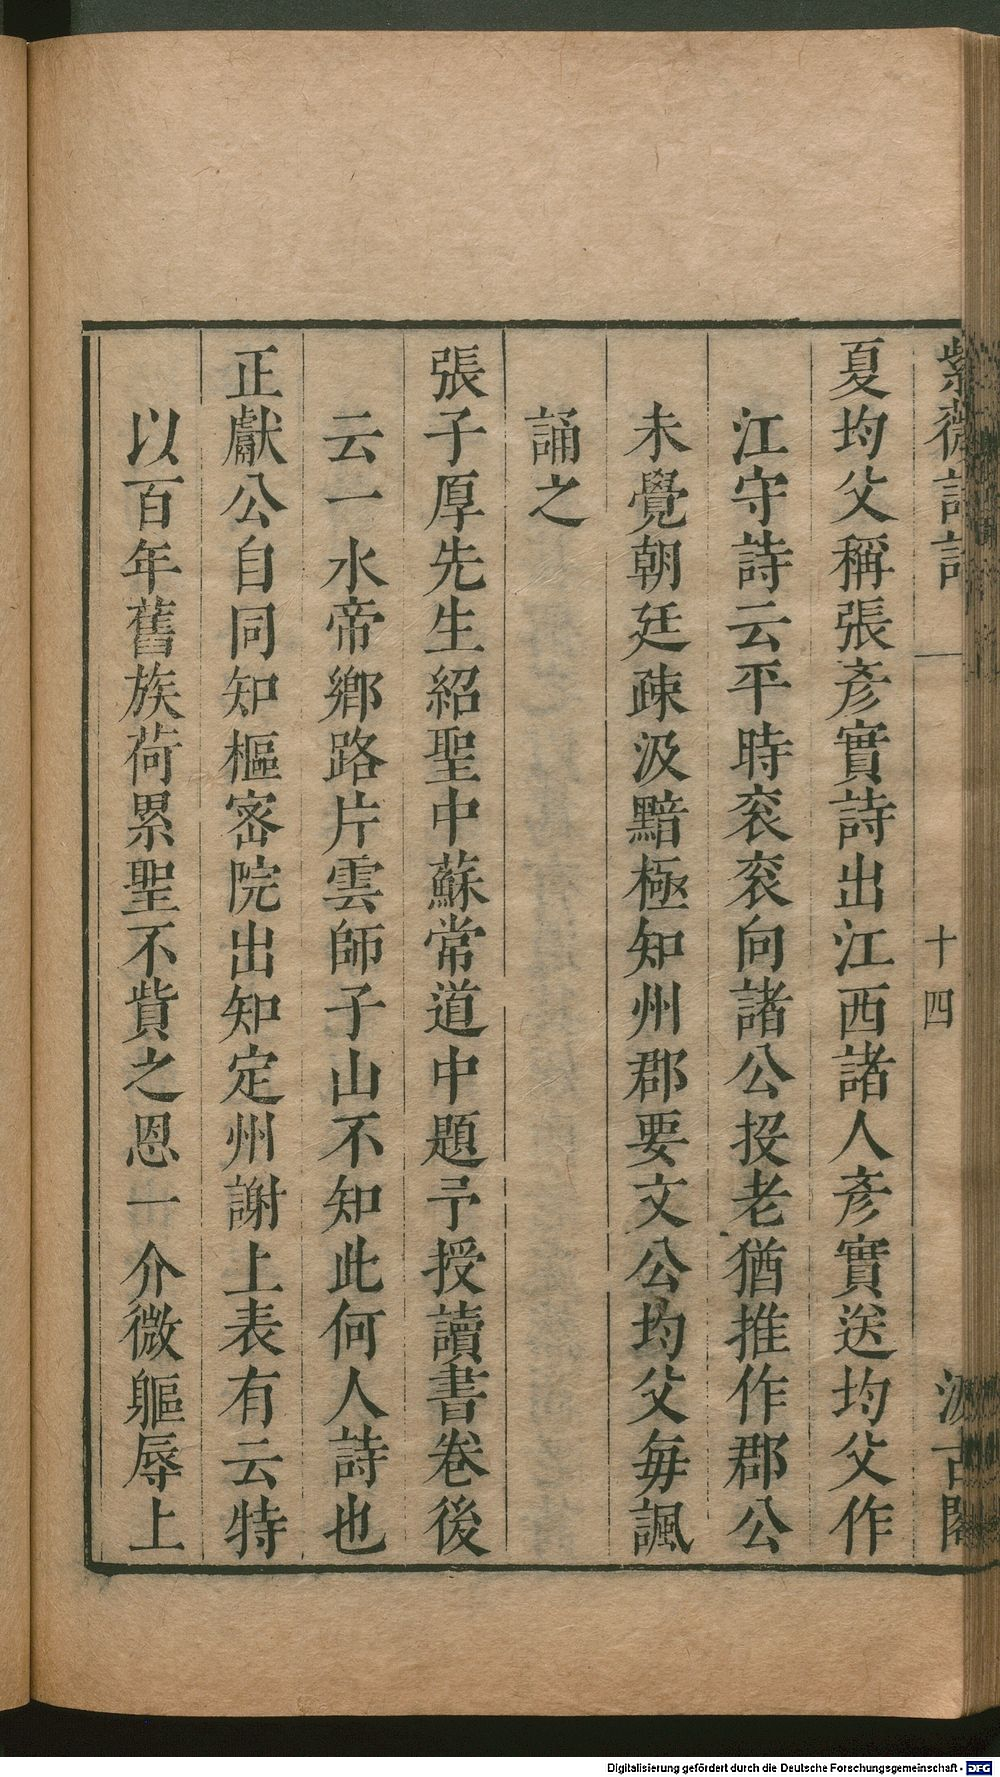 紫薇詩話
十四
汲古閣
夏均父稱張彥實詩出江西諸人彥實送均父作
江守詩云平時衮衮向諸公投老猶推作郡公
未覺朝廷疎汲黯極知州郡要文公均父每諷
誦之
張子厚先生紹聖中蘇常道中題予授讀書卷後
云一水帝鄉路片雲師子山不知此何人詩也
正獻公自同知樞密院出知定州謝上表有云特
以百年舊族荷累聖不貲之恩一介微軀辱上
Digitalisierung gefördert durch die Deutsche Forschungsgemeinschaft - DFG